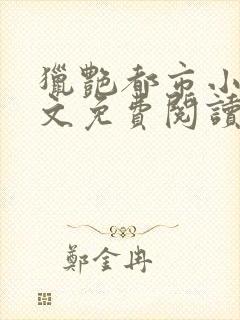 獵艷都市小
文免費閱讀
鄭金冉